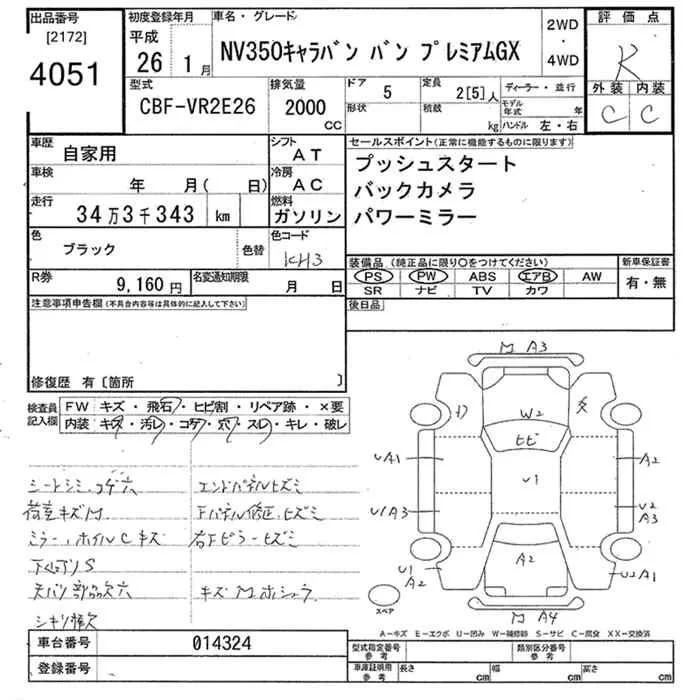 出品番号
[2172]
4051
初度登録年月
平成
26年 1月
車名・グレード
NV350キャラバン バン プレミアムGX
2WD
・
4WD
評価点
R
外装 内装
C C
型式
CBF-VR2E26
排気量
2000
CC
ドア
5
形状
定員
2[5]人
積載
kg
ディーラー・並行
モデル年式 年
ハンドル 左・右
車歴
自家用
シフト
AT
車検
年 月( 日)
冷房
AC
走行
34万3千343 km
燃料
ガソリン
色
ブラック
色替
色コード
KH3
R券
9,160円
名変通知期限
月 日
セールスポイント(正常に機能するものに限ります)
プッシュスタート
バックカメラ
パワーミラー
装備品 (純正品に限り○をつけてください)
PS PW ABS エアB AW
SR ナビ TV カワ
新車保証書
有・無
後日品
注意事項申告欄(不具合内容等は具体的に記入して下さい)
修復歴 有〔箇所 〕
検査員記入欄
FW キズ・飛石・ヒビ割・リペア跡・×要
内装 キズ・汚レ・コゲ・穴・スレ・キレ・破レ
シートシミ コゲ穴
荷室キズM
ミラー、ホイルCキズ
下回りS
天バリ部品欠穴
シキリ棒欠
エンドパネルヒズミ
下パネル修正、ヒズミ
右下ピラーヒズミ
キズMホシュウ
M A3
W2
ヒビ
U1
A2
UA1
U1A3
U1
A2
A2
U2
A3
UユA1
M A4
スペア
A-キズ E-エクボ U-凹み W-補修跡 S-サビ C-腐食 XX-交換済
車台番号
014324
登録番号
型式指定番号
参考
類別区分番号
参考
車庫証明用
参考
長さ cm 幅 cm 高さ cm